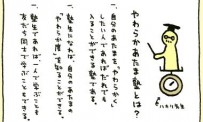 やわらかあたま塾とは？
一、自分のあたまを、「やわらかく
したい人であればだれでも
入ることができる塾である。
一、塾生になれば、自分のあたまの
「やわらか度」を知ることができる。
一、塾生であれば、一人で学ぶことも
友だち同士で学ぶこともできる。
ハカリ先生